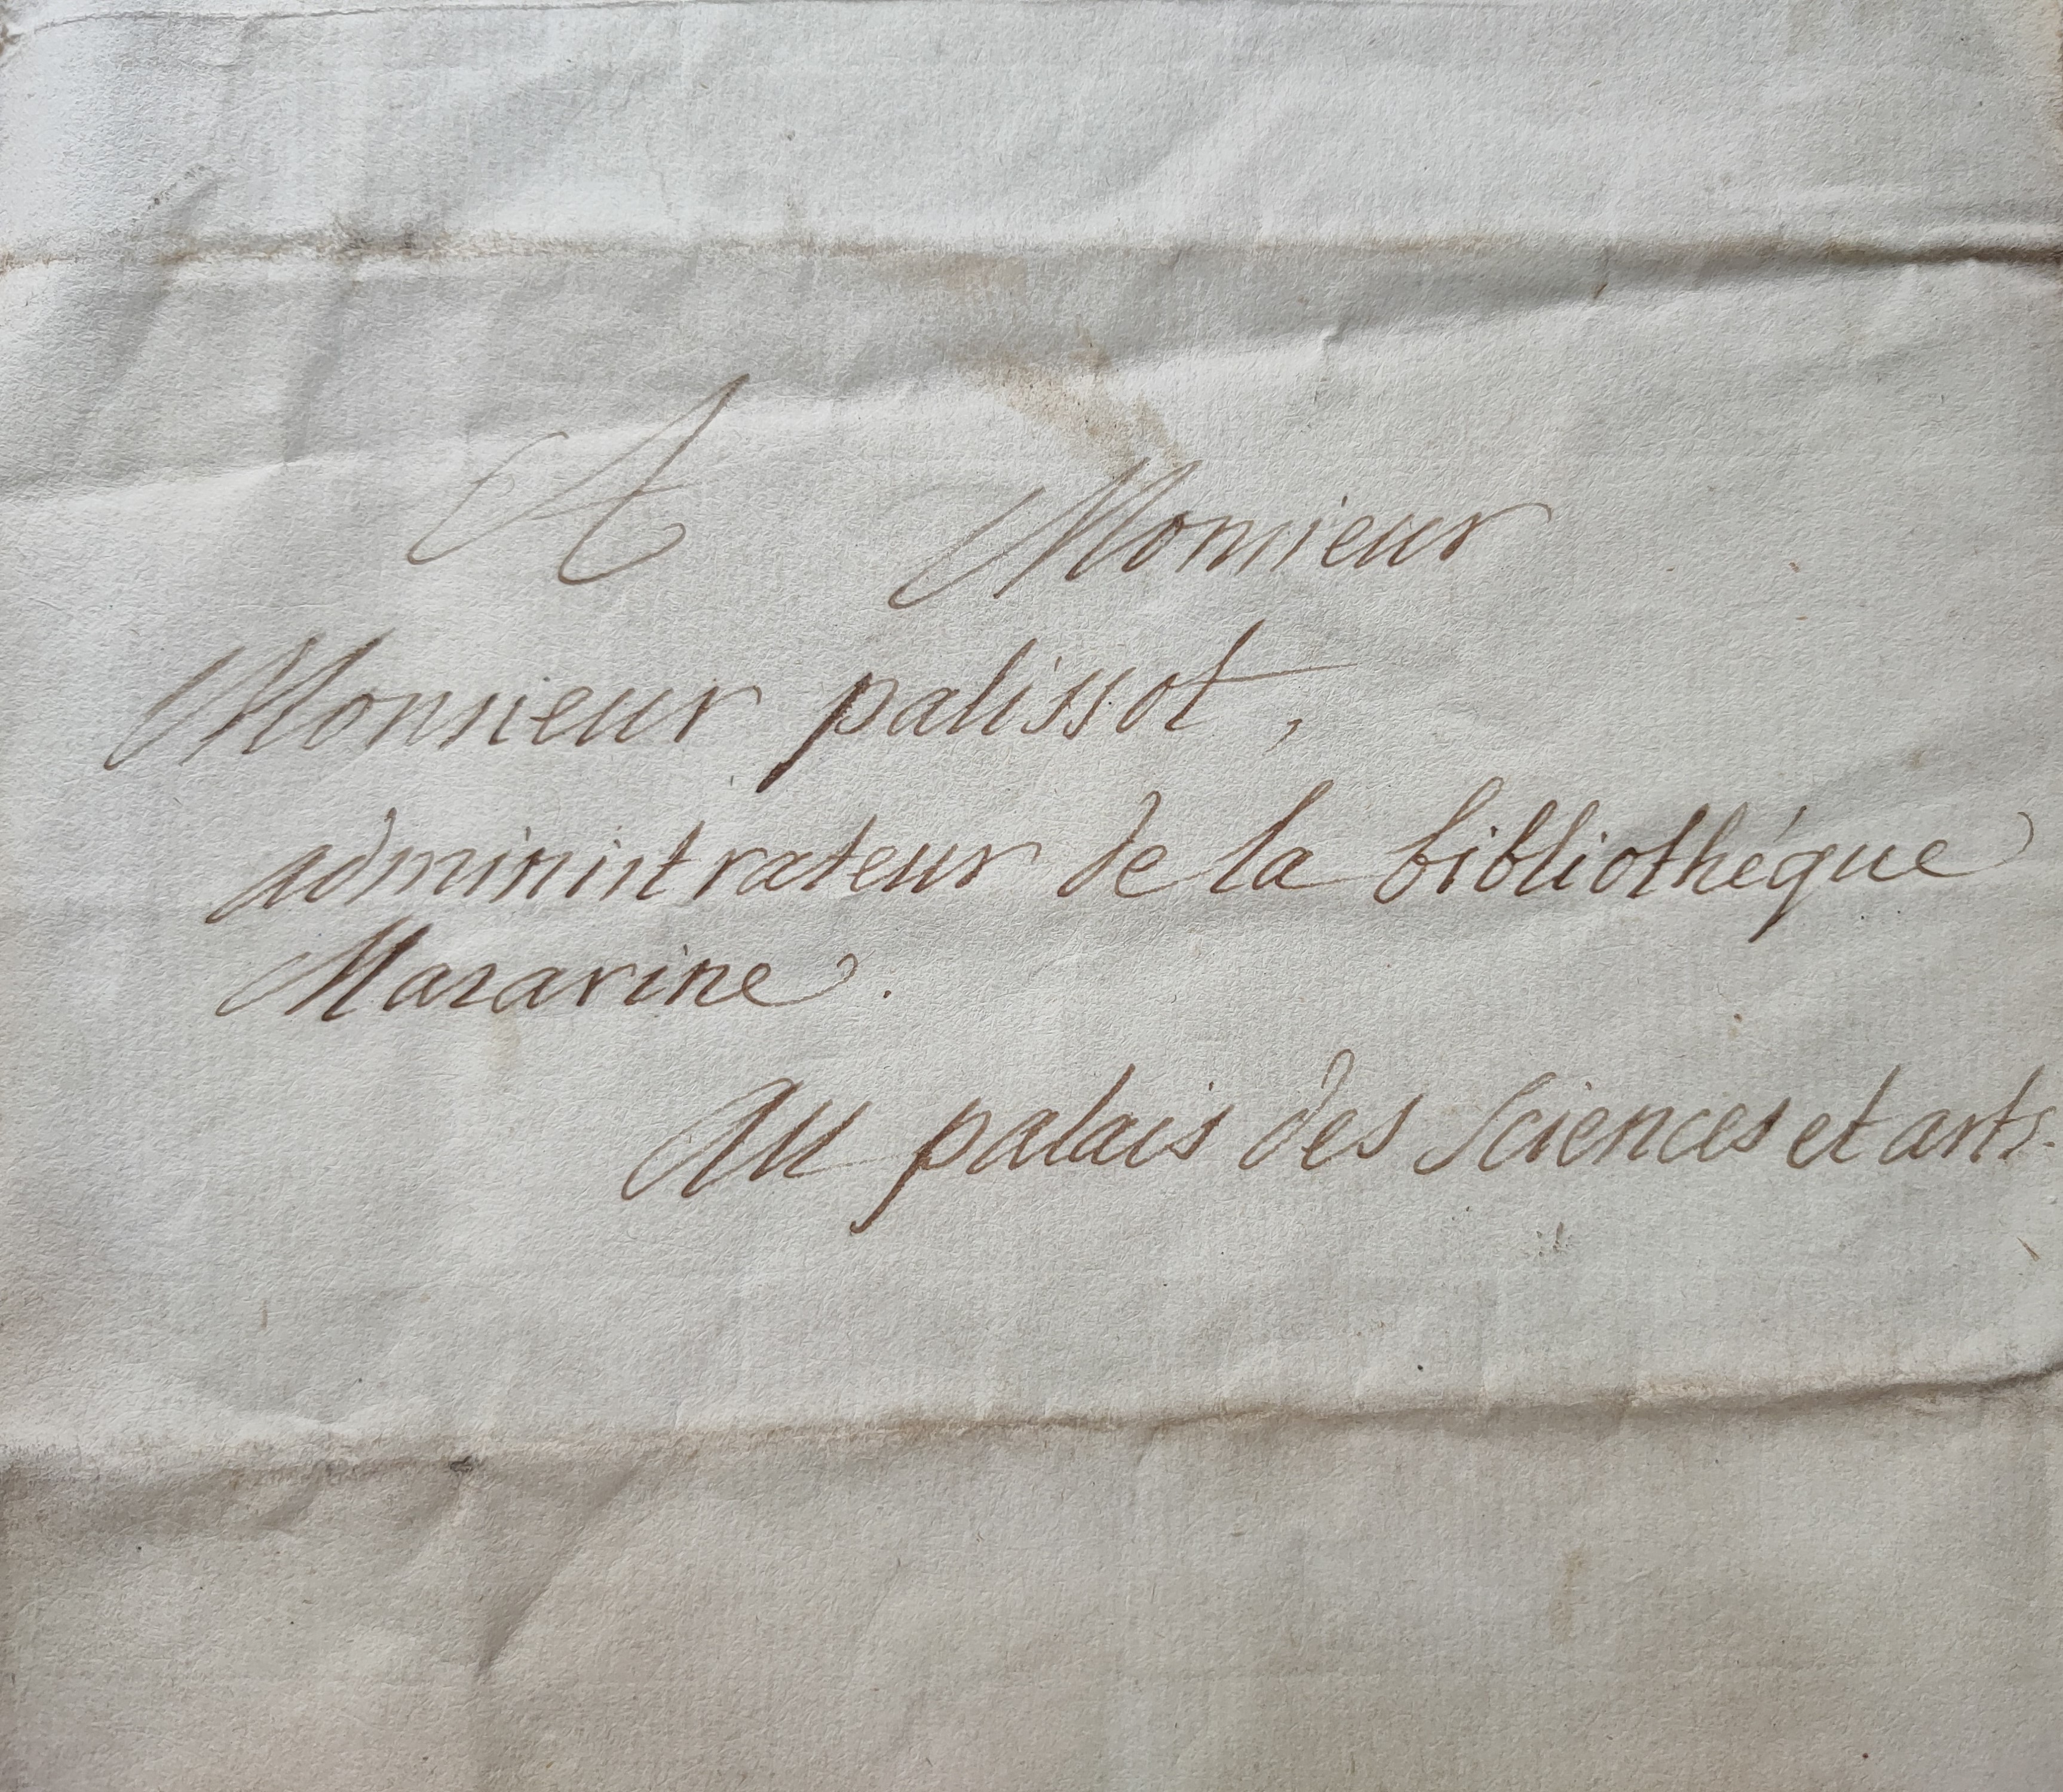 A Monsieur
Monsieur palissot,
administrateur de la bibliothéque
Mazarine.
Au palais des Sciences et arts.